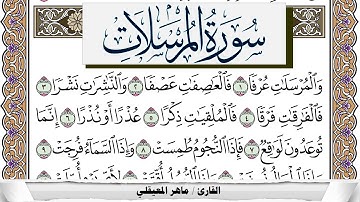 سُورَةُ المُرْسَلَات
وَالْمُرْسَلَاتِ عُرْفًا ١ فَالْعَاصِفَاتِ عَصْفًا ٢ وَالنَّاشِرَاتِ نَشْرًا ٣
فَالْفَارِقَاتِ فَرْقًا ٤ فَالْمُلْقِيَاتِ ذِكْرًا ٥ عُذْرًا أَوْ نُذْرًا ٦ إِنَّمَا
تُوعَدُونَ لَوَاقِعٌ ٧ فَإِذَا النُّجُومُ طُمِسَتْ ٨ وَإِذَا السَّمَاءُ فُرِجَتْ ٩
القارئ / ماهر المعيقلي